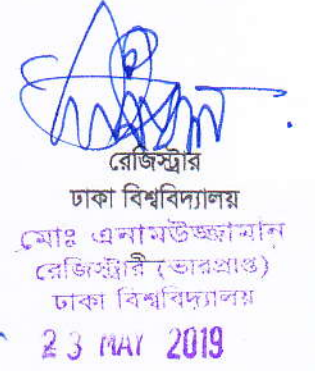 রেজিস্ট্রার
ঢাকা বিশ্ববিদ্যালয়
মোঃ এনামউজ্জামান
রেজিস্ট্রার (ভারপ্রাপ্ত)
ঢাকা বিশ্ববিদ্যালয়
23 MAY 2019